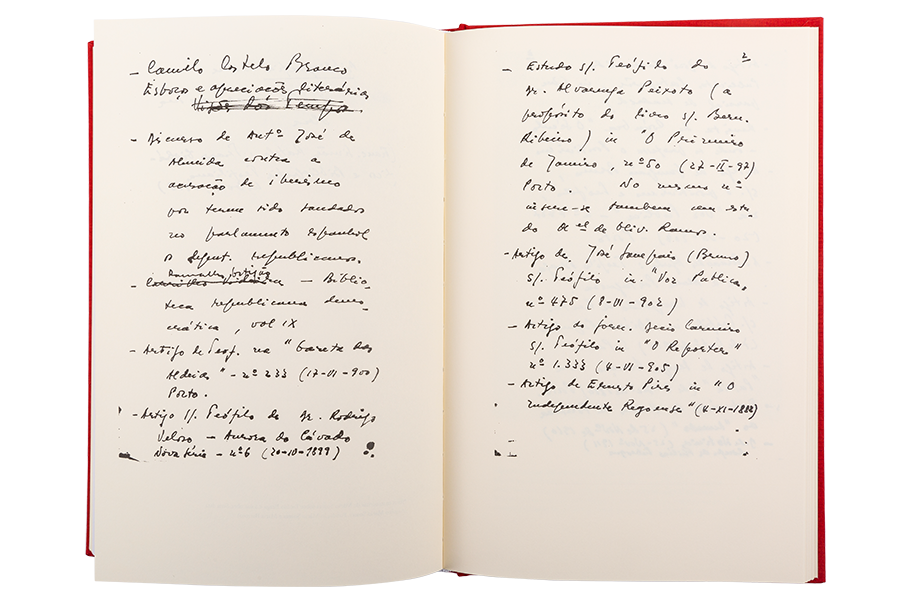 - Camilo Castelo Branco
Esboço e apreciações literárias
Visões dos Tempos
- Discurso de Antº José de
Almeida contra a
acusação de iberismo
por terem sido saudados
no parlamento espanhol
o deput. republicanos.
Ramalho Ortigão
- – Biblio-
teca republicana demo-
crática, vol IX
- Artigo de Teof. na "Gazeta das
Aldeias" - nº 233 (17-VI-900)
Porto.
- Artigo s/. Teófilo de Dr. Rodrigo
Veloso - Aurora do Cávado
Nova série - nº 6 (20-10-1899)
2
- Estudo s/. Teófilo do
Dr. Alvarenga Peixoto (a
propósito do livro s/. Bern.
Ribeiro) in "O Primeiro
de Janeiro, nº 50 (27-II-97)
Porto. No mesmo nº
insere-se tambem um estu-
do de Oliv. Ramos.
- Artigo de José Sampaio (Bruno)
s/. Teófilo in "Voz Publica,
nº 475 (8-VI-902)
- Artigo do jorn. Carneiro
s/. Teófilo in "O Reporter"
nº 1.333 (4-VI-905)
- Artigo de Ernesto Pires in "O
Independente Regoense" (4-XI-1888)